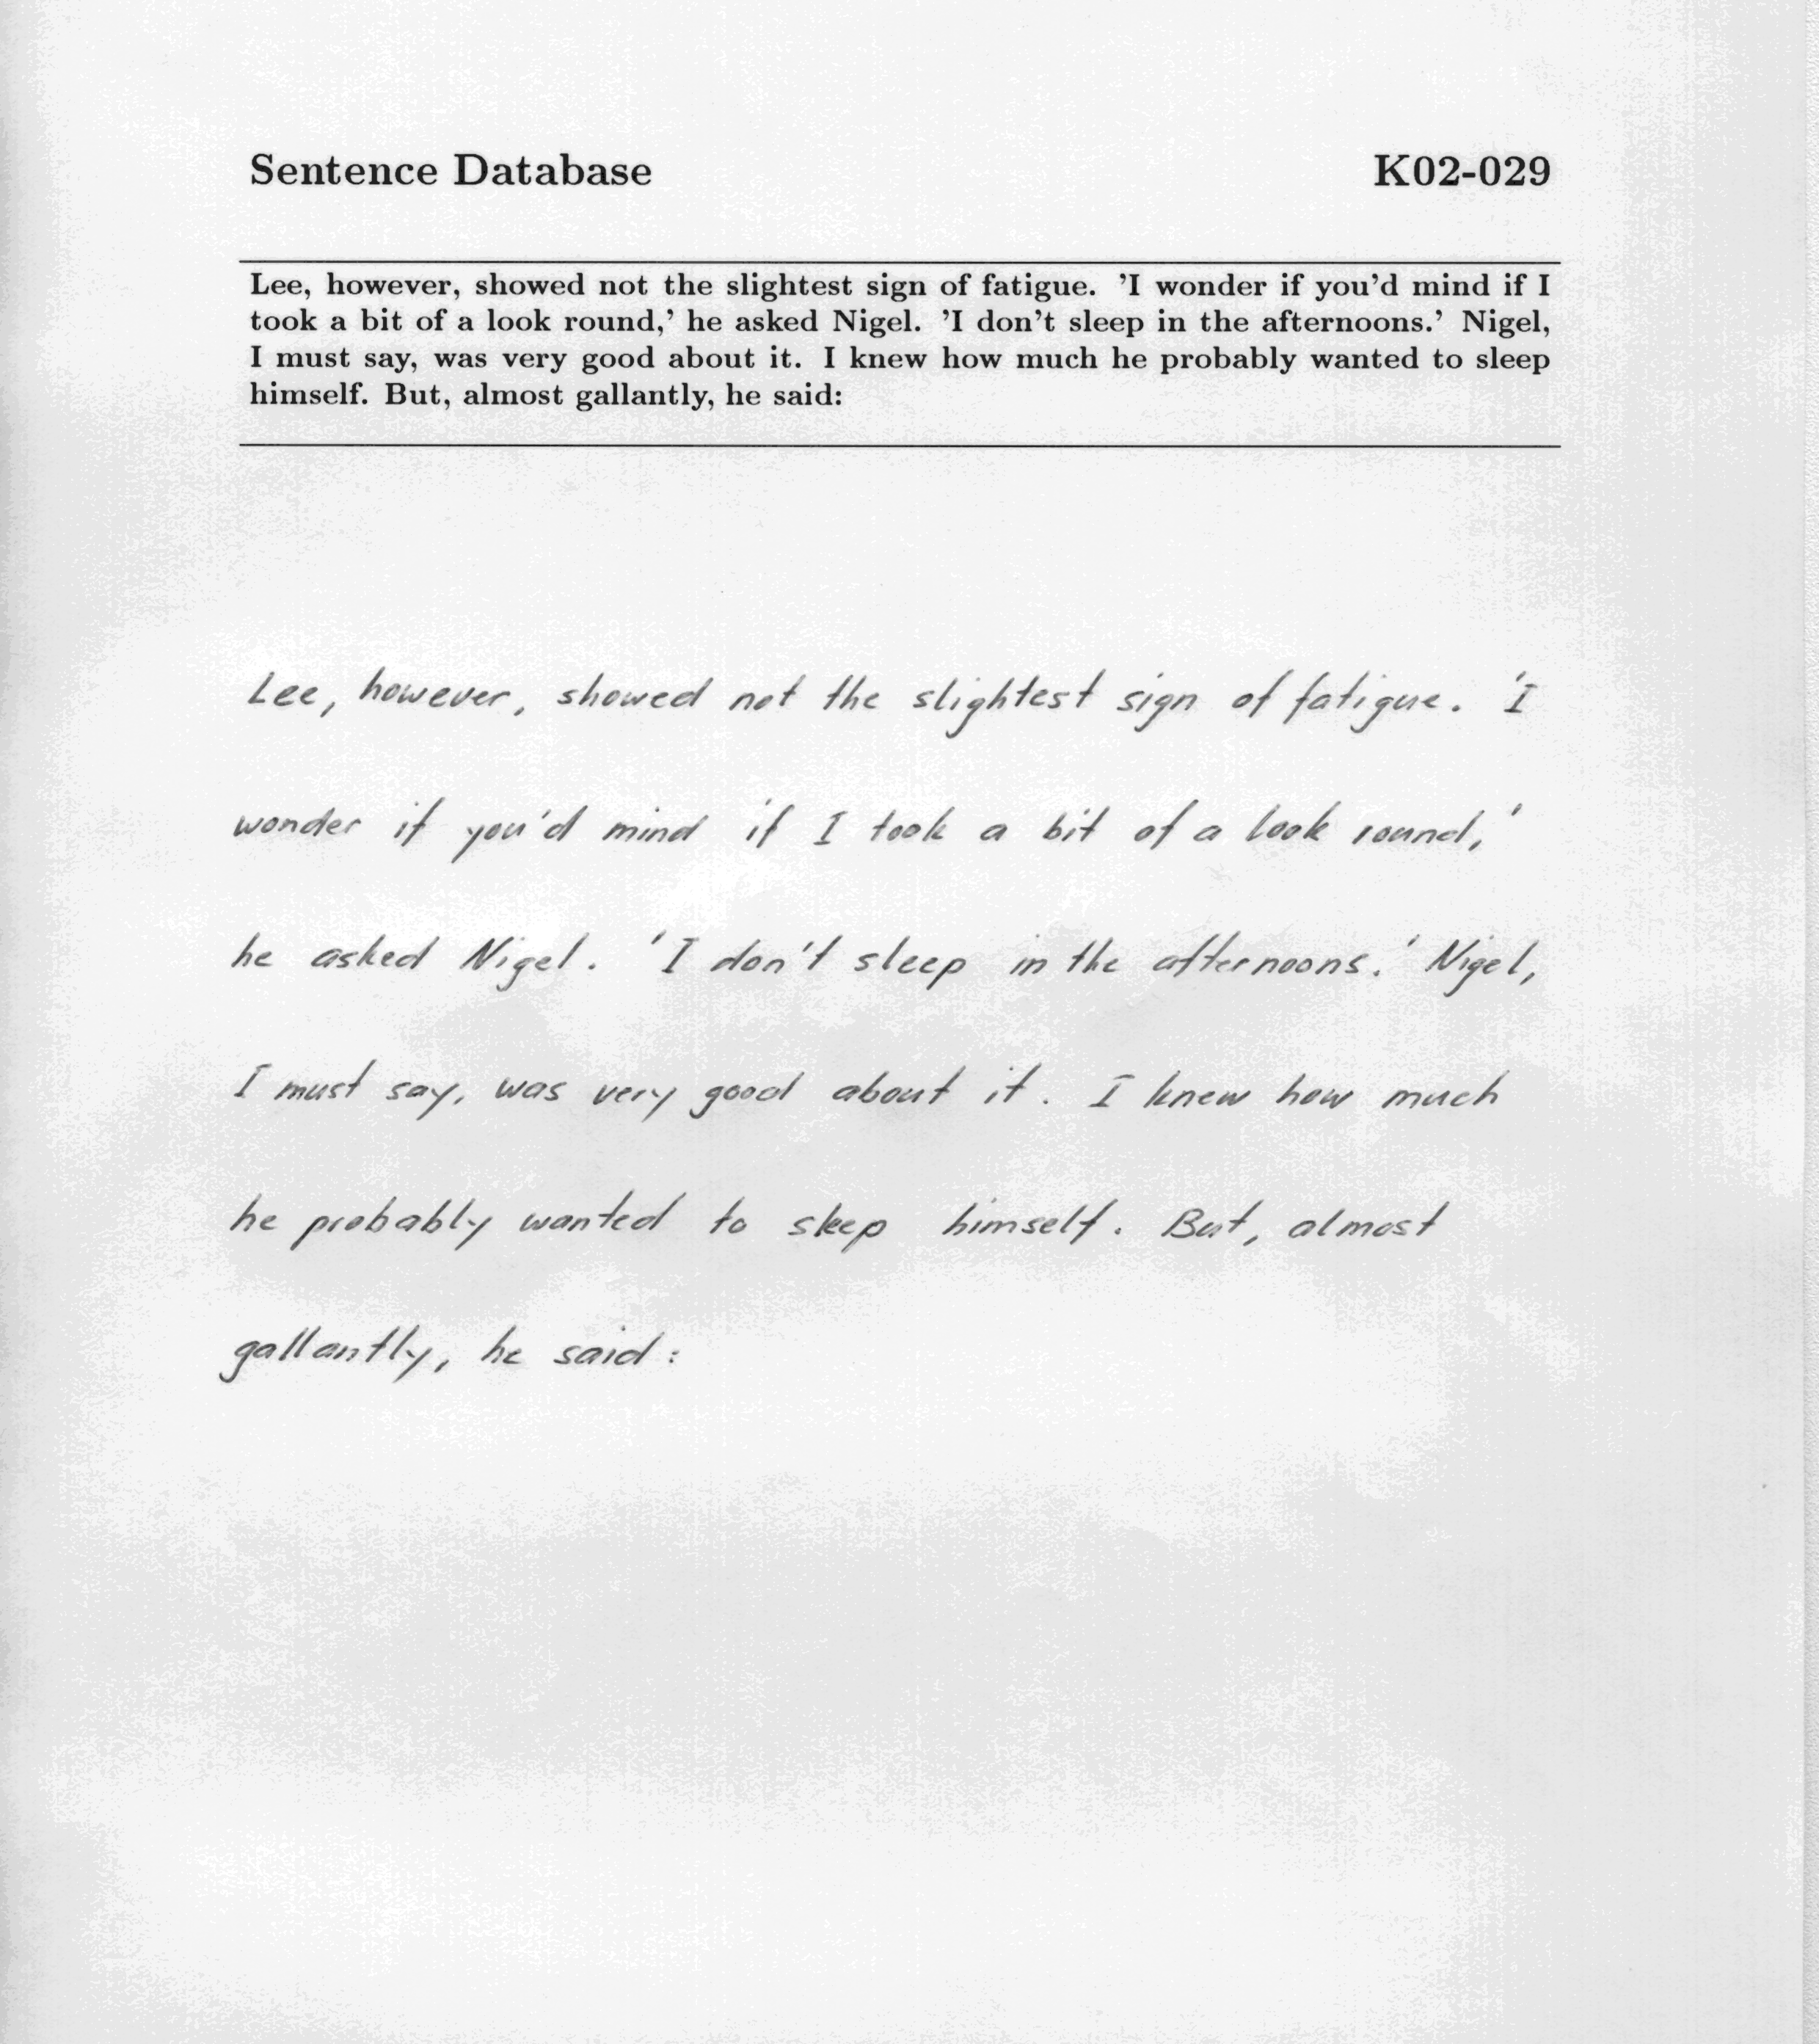 Sentence Database K02-029
Lee, however, showed not the slightest sign of fatigue. 'I wonder if you'd mind if I
took a bit of a look round,' he asked Nigel. 'I don't sleep in the afternoons.' Nigel,
I must say, was very good about it. I knew how much he probably wanted to sleep
himself. But, almost gallantly, he said:
Lee, however, showed not the slightest sign of fatigue. 'I
wonder if you'd mind if I took a bit of a look round,'
he asked Nigel. 'I don't sleep in the afternoons.' Nigel,
I must say, was very good about it. I knew how much
he probably wanted to sleep himself. But, almost
gallantly, he said: